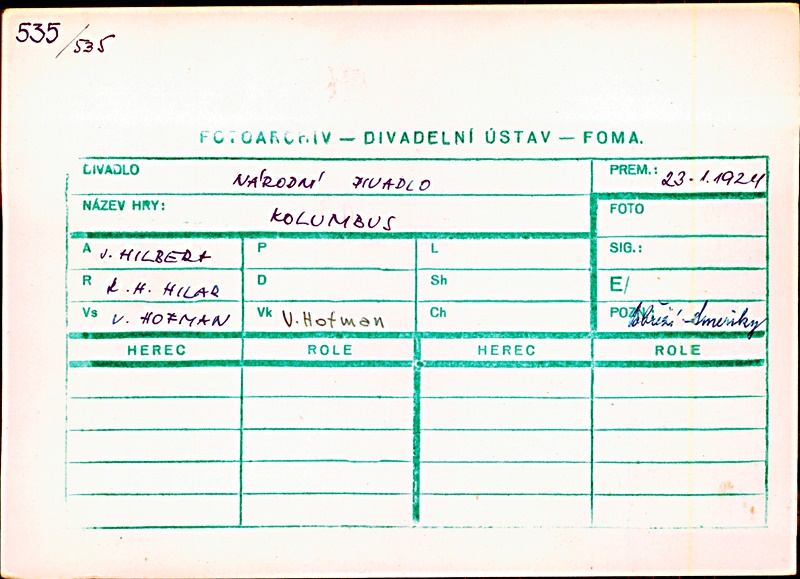 535/535
FOTOARCHIV — DIVADELNÍ ÚSTAV — FOMA.
DIVADLO NÁRODNÍ DIVADLO PREM.: 23.1.1924
NÁZEV HRY: KOLUMBUS FOTO
A J. HILBERT P L SIG.:
R K. H. HILAR D Sh E/
Vs V. HOFMAN Vk V. Hofman Ch POZN. Pobřeží Ameriky
HEREC ROLE HEREC ROLE